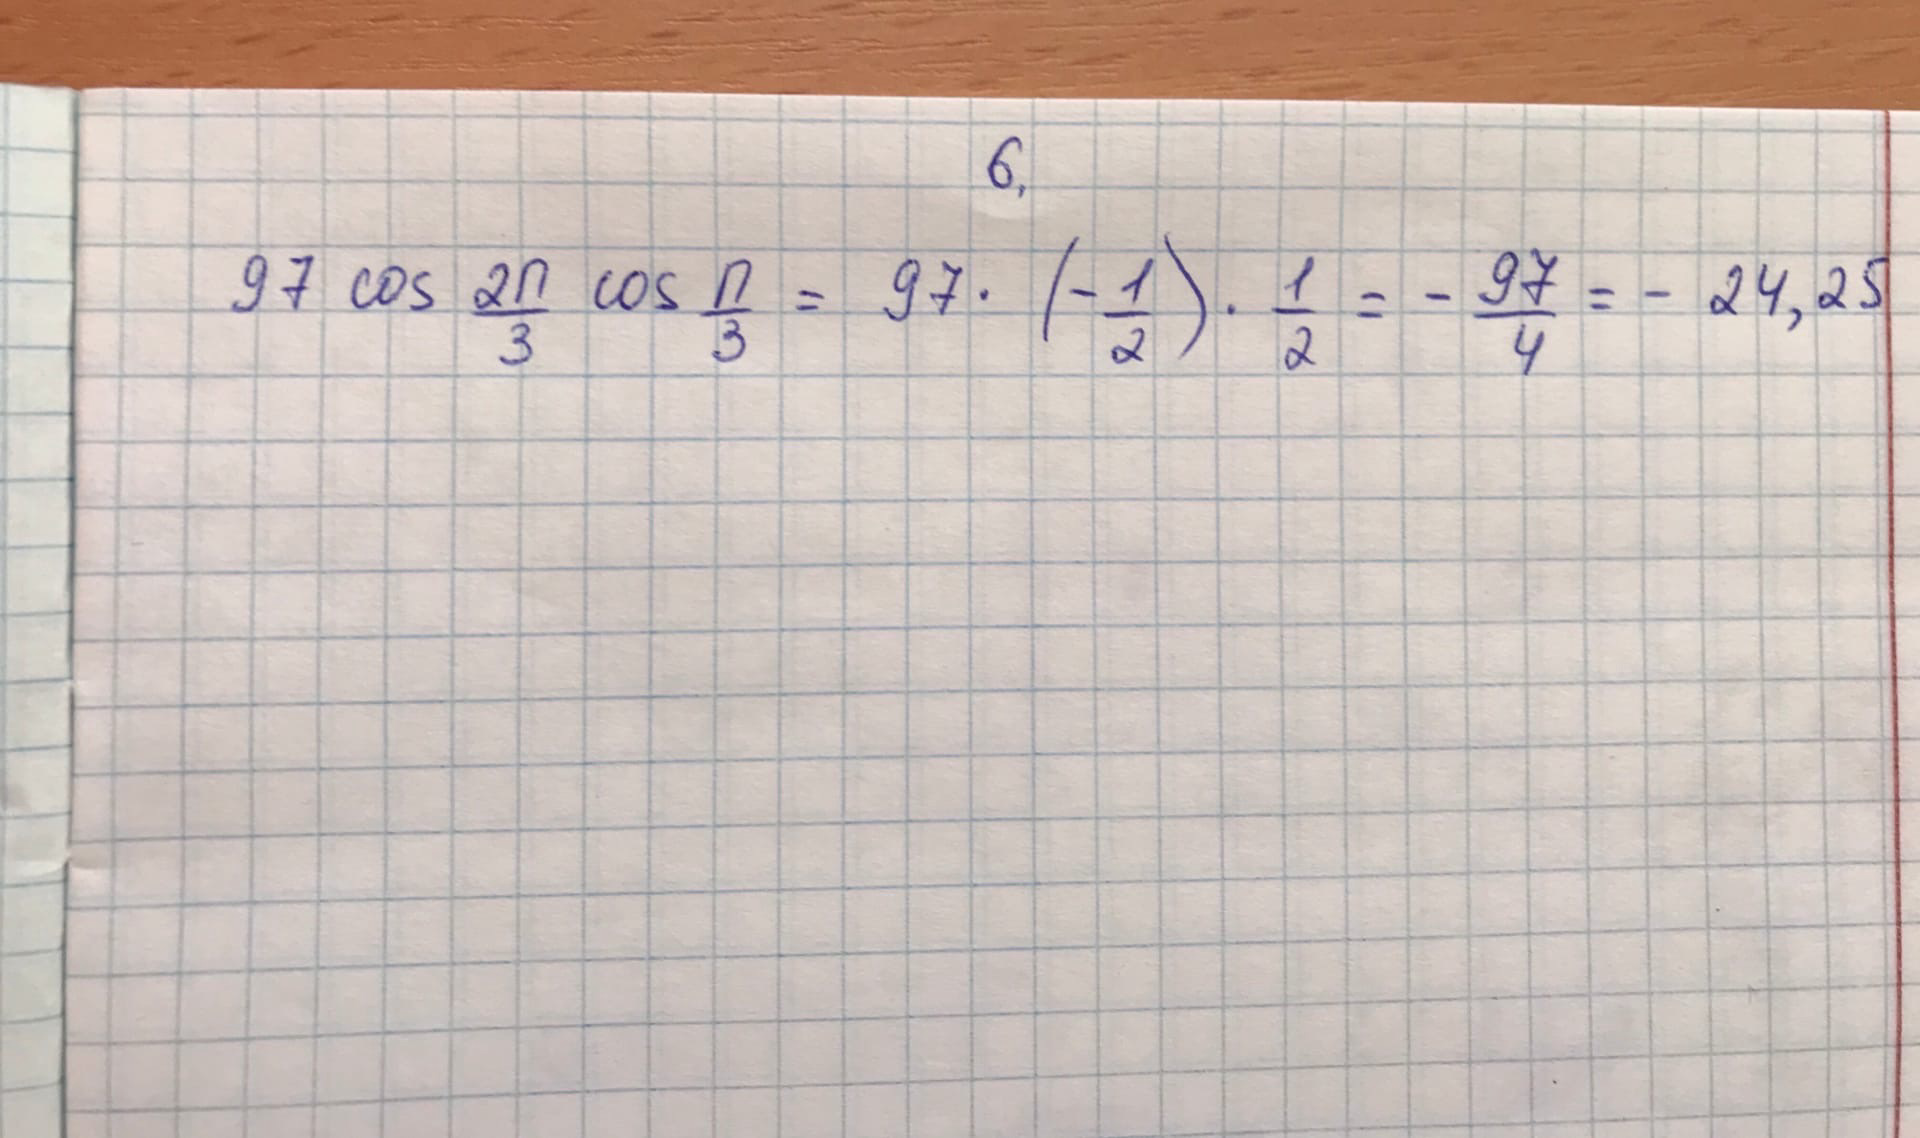 6.
97 cos 2π/3 cos π/3 = 97 · (-1/2) · 1/2 = - 97/4 = - 24,25